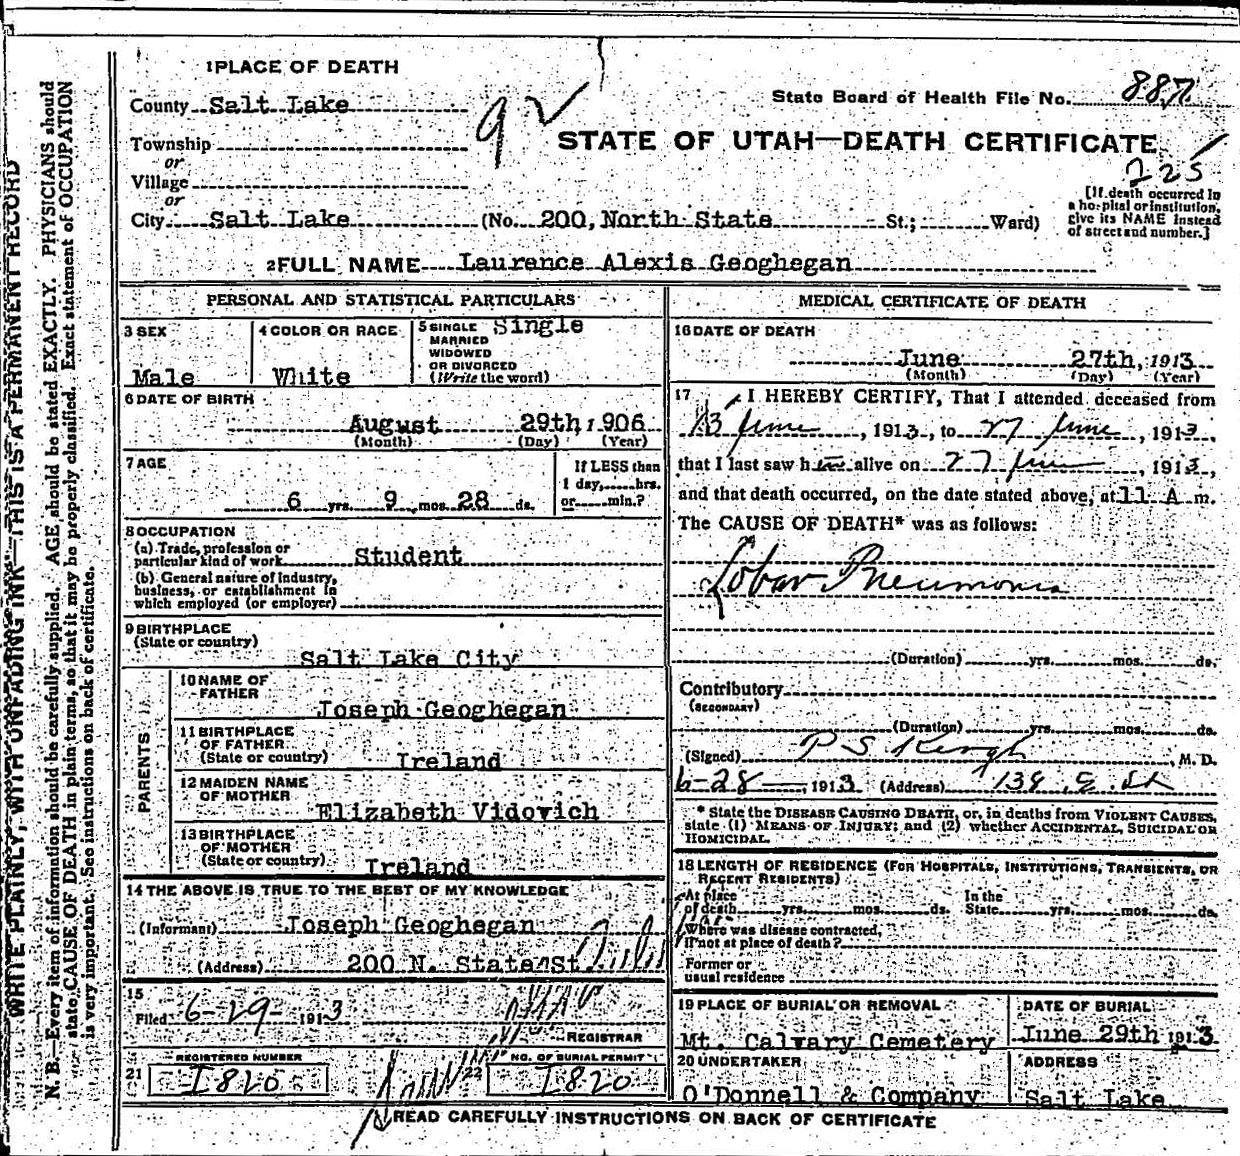 1 PLACE OF DEATH
County Salt Lake
State Board of Health File No.
Township
or
Village
or
STATE OF UTAH—DEATH CERTIFICATE
225
[If death occurred in
a hospital or institution,
give its NAME instead
of street and number.]
City Salt Lake (No. 200, North State St.; Ward)
2 FULL NAME Laurence Alexis Geoghegan
PERSONAL AND STATISTICAL PARTICULARS
3 SEX
Male
4 COLOR OR RACE
White
5 SINGLE
MARRIED
WIDOWED
OR DIVORCED
(Write the word)
Single
6 DATE OF BIRTH
August 29th, 1906
(Month) (Day) (Year)
7 AGE
6 yrs. 9 mos. 28 ds.
If LESS than
1 day, hrs.
or min.?
8 OCCUPATION
(a) Trade, profession or
particular kind of work Student
(b) General nature of industry,
business, or establishment in
which employed (or employer)
9 BIRTHPLACE
(State or country)
Salt Lake City
PARENTS
10 NAME OF
FATHER
Joseph Geoghegan
11 BIRTHPLACE
OF FATHER
(State or country) Ireland
12 MAIDEN NAME
OF MOTHER
Elizabeth Vidovich
13 BIRTHPLACE
OF MOTHER
(State or country) Ireland
14 THE ABOVE IS TRUE TO THE BEST OF MY KNOWLEDGE
(Informant) Joseph Geoghegan
(Address) 200 N. State St
15
Filed 6-29- 1913
REGISTRAR
REGISTERED NUMBER
21 I820
NO. OF BURIAL PERMIT
22 I820
MEDICAL CERTIFICATE OF DEATH
16 DATE OF DEATH
June 27th, 1913
(Month) (Day) (Year)
17 I HEREBY CERTIFY, That I attended deceased from
13 June, 1913, to 27 June, 1913,
that I last saw him alive on 27 June, 1913,
and that death occurred, on the date stated above, at 11 A m.
The CAUSE OF DEATH* was as follows:
Lobar Pneumonia
(Duration) yrs. mos. ds.
Contributory
(SECONDARY)
(Duration) yrs. mos. ds.
(Signed) P S Keogh, M. D.
6-28-, 1913 (Address) 138 E. St
* State the DISEASE CAUSING DEATH, or, in deaths from VIOLENT CAUSES,
state (1) MEANS OF INJURY; and (2) whether ACCIDENTAL, SUICIDAL OR
HOMICIDAL.
18 LENGTH OF RESIDENCE (FOR HOSPITALS, INSTITUTIONS, TRANSIENTS, OR
RECENT RESIDENTS)
At place
of death yrs. mos. ds. In the
State yrs. mos. ds.
Where was disease contracted,
if not at place of death?
Former or
usual residence
19 PLACE OF BURIAL OR REMOVAL
Mt. Calvary Cemetery
DATE OF BURIAL
June 29th 1913
20 UNDERTAKER
O'Donnell & Company
ADDRESS
Salt Lake
READ CAREFULLY INSTRUCTIONS ON BACK OF CERTIFICATE
WRITE PLAINLY, WITH UNFADING INK—THIS IS A PERMANENT RECORD
N. B.—Every item of information should be carefully supplied. AGE should be stated EXACTLY. PHYSICIANS should
state CAUSE OF DEATH in plain terms, so that it may be properly classified. Exact statement of OCCUPATION
is very important. See instructions on back of certificate.